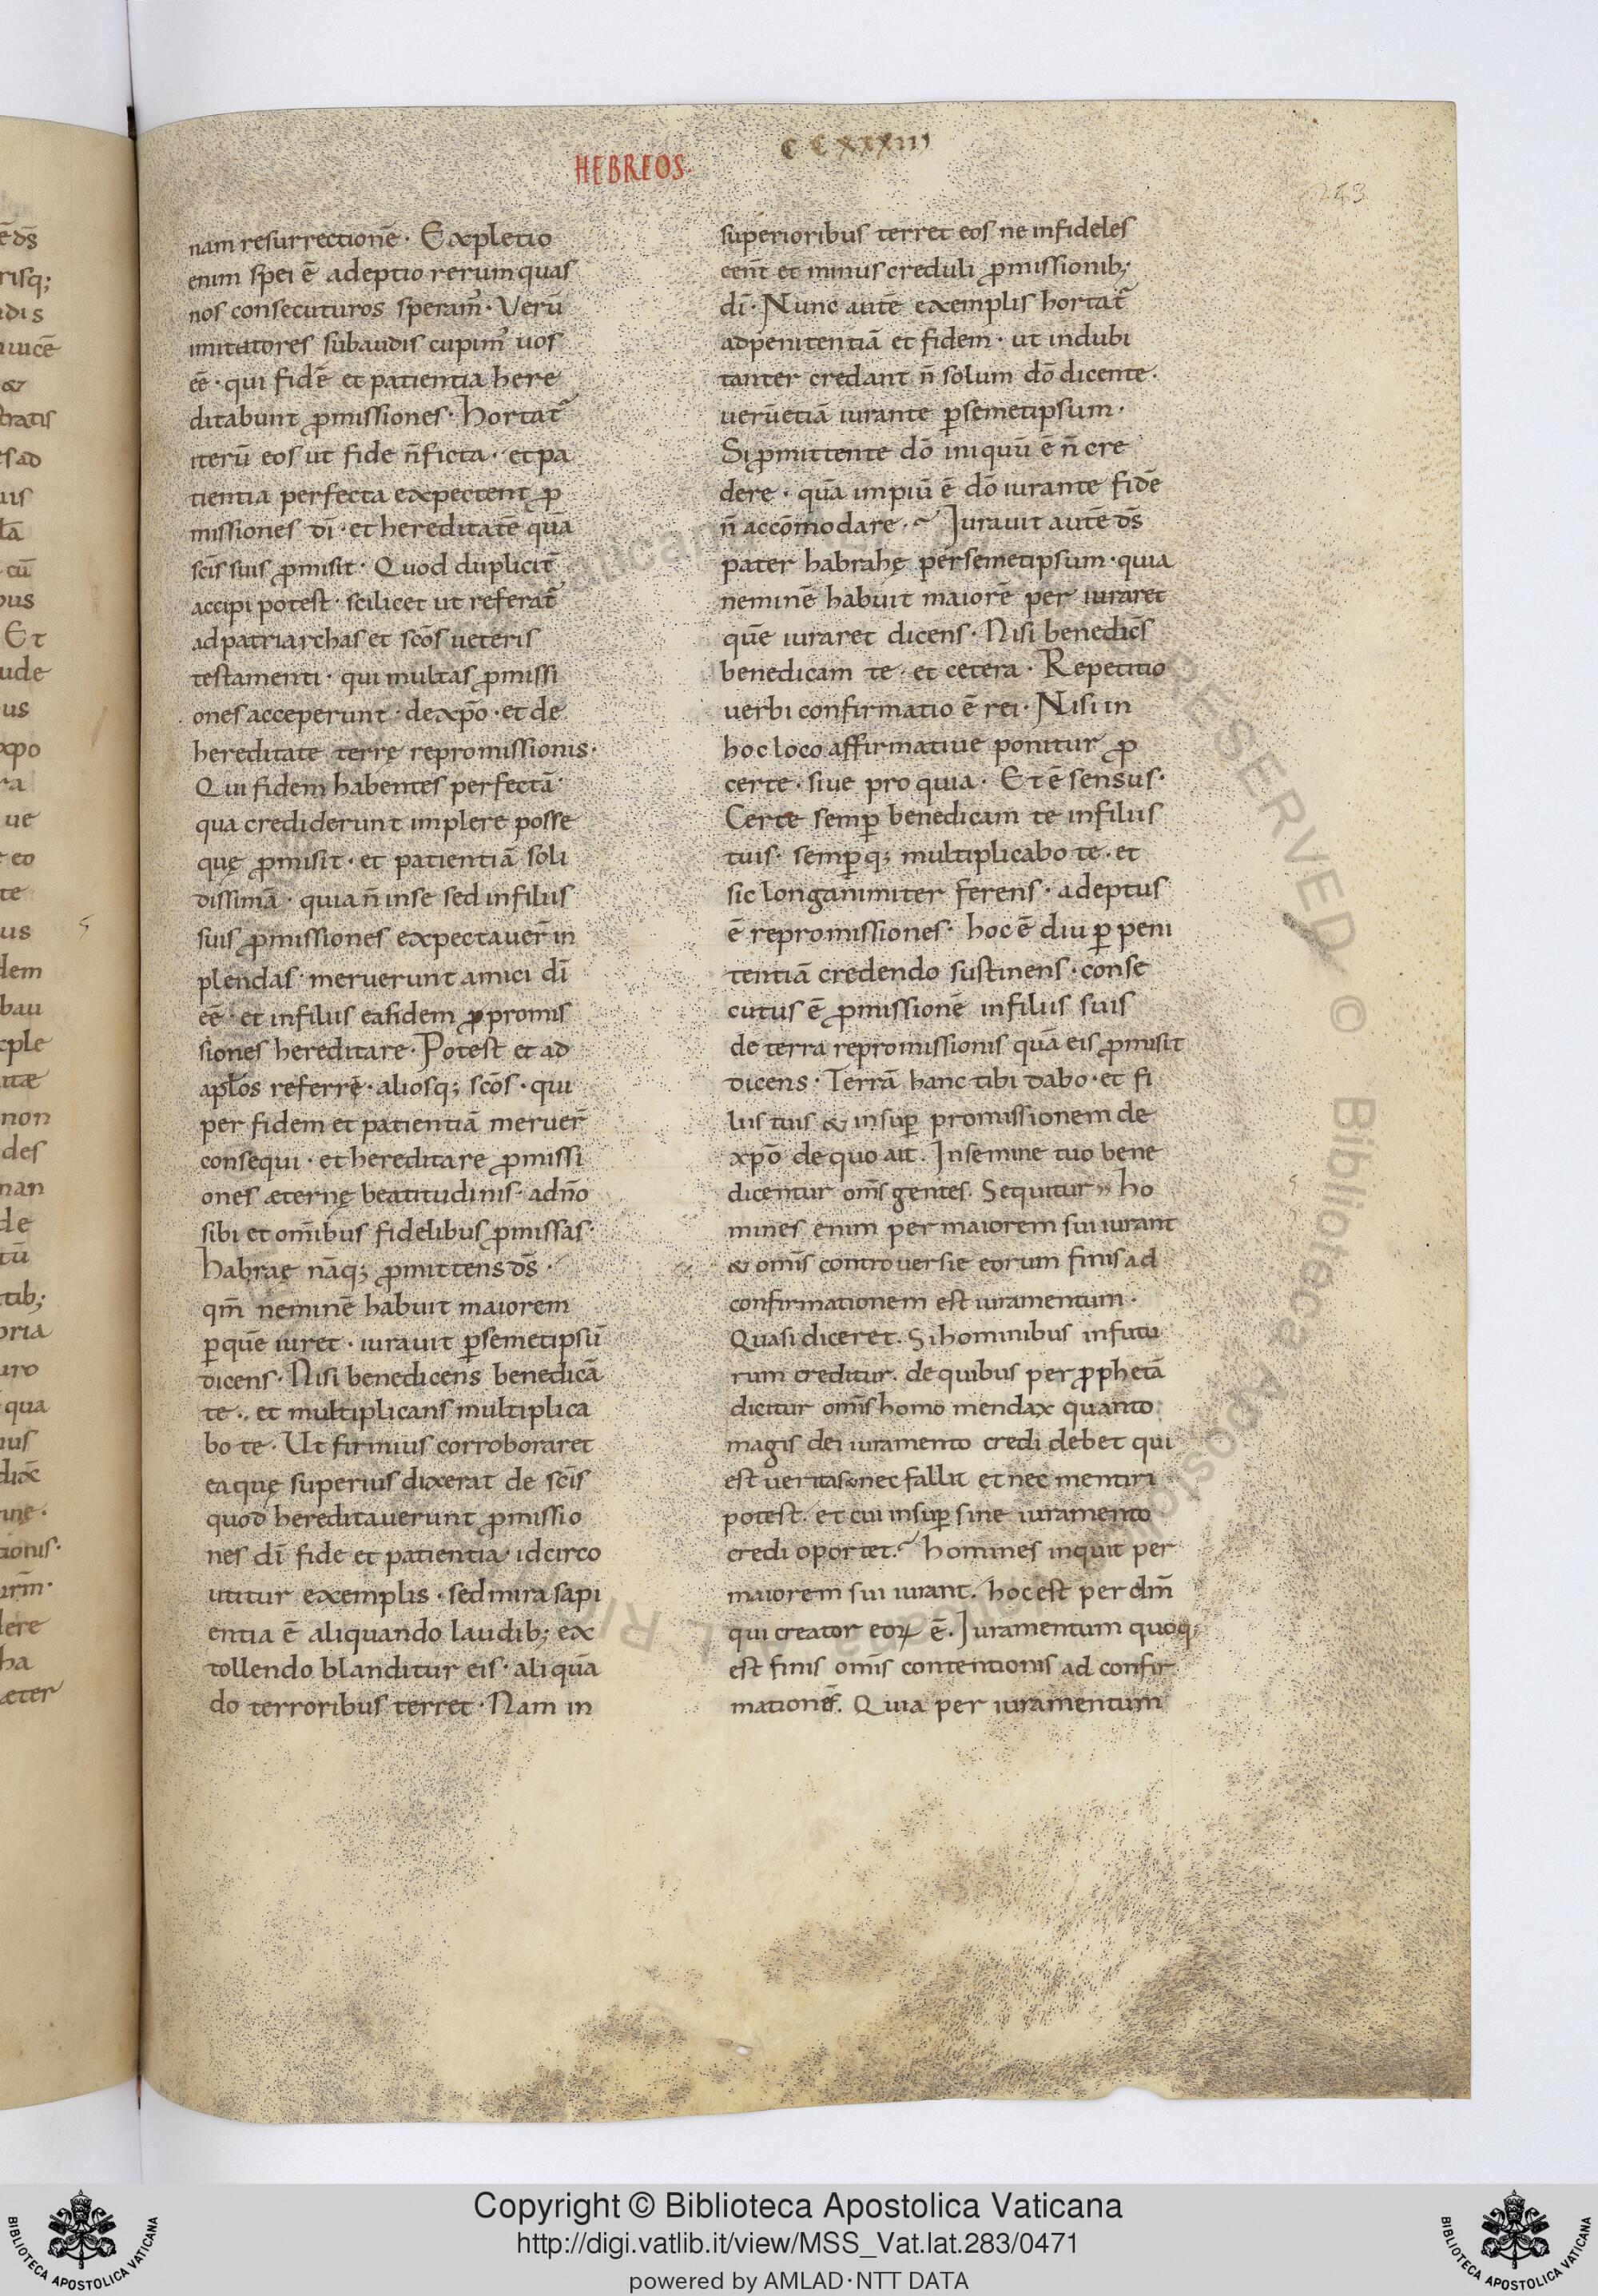 HEBREOS·
CCXXXIII
nam resurrectionē· Expletio
enim spei ē adeptio rerum quas
nos consecuturos speram᾽· Verū
imitatores subaudis cupim᾽ uos
eē· qui fidē et patientia here
ditabunt ꝓmissiones· Hortat᷑
iterū eos ut fide n̄ ficta· et pa
tientia perfecta expectent ꝓ
missiones dī· et hereditatē quā
scīs suis ꝓmisit· Quod duplicit᷑
accipi potest· scilicet ut referat᷑
ad patriarchas et scōs ueteris
testamenti· qui multas ꝓmissi
ones acceperunt· de xp̄o· et de
hereditate terrę repromissionis·
Qui fidem habentes perfectā·
qua crediderunt implere posse
quę ꝓmisit· et patientiā soli
dissimā· quia n̄ in se sed in filiis
suis ꝓmissiones expectauer̄ in
plendas· meruerunt amici dī
eē· et in filiis eafidem ꝓpromis
siones hereditare· Potest et ad
apl̄os referrē· aliosq; scōs· qui
per fidem et patientiā meruer̄
consequi· et hereditare ꝓmissi
ones æternę beatitudinis· a dn̄o
sibi et om̄ibus fidelibus ꝓmissas·
Habraę nāq; ꝓmittens ds̄·
qm̄ neminē habuit maiorem
ꝑ quē iuret· iurauit ꝑ semetipsū
dicens· Nisi benedicens benedicā
te· et multiplicans multiplica
bo te· Ut firmius corroboraret
ea quę superius dixerat de scīs
quod hereditauerunt ꝓmissio
nes dī fide et patientia· idcirco
utitur exemplis· sed mira sapi
entia ē aliquando laudib; ex
tollendo blanditur eis· aliquā
do terroribus terret· Nam in
superioribus terret eos ne infideles
eēnt et minus creduli ꝓmissionib;
dī· Nunc autē exemplis hortat᷑
ad penitentiā et fidem· ut indubi
tanter credant n̄ solum dō dicente·
uerū etiā iurante ꝑ semetipsum·
Si ꝓmittente dō iniquū ē n̄ cre
dere· quā impiū ē dō iurante fidē
n̄ accōmodare· Iurauit autē ds̄
pater habrahę per semetipsum· quia
neminē habuit maiorē per iuraret
quē iuraret dicens· Nisi benedic̄s
benedicam te· et cetera· Repetitio
uerbi confirmatio ē rei· Nisi in
hoc loco affirmatiue ponitur ꝓ
certe· siue pro quia· Et ē sensus·
Certe semꝑ benedicam te in filiis
tuis· semꝑq; multiplicabo te· et
sic longanimiter ferens· adeptus
ē repromissiones· hoc ē diu ꝑ peni
tentiā credendo sustinens· conse
cutus ē ꝓmissionē in filiis suis
de terra repromissionis quā eis ꝓmisit
dicens· Terrā hanc tibi dabo· et fi
liis tuis & insuꝑ promissionem de
xp̄o de quo ait. In semine tuo bene
dicentur om̄s gentes. Sequitur Ho
mines enim per maiorem sui iurant
& om̄is controuersie eorum finis ad
confirmationem est iuramentum·
Quasi diceret. Si hominibus in futu
rum creditur. de quibus per ꝓphetā
dicitur om̄is homo mendax quanto
magis dei iuramento credi debet qui
est ueritas nec fallit et nec mentiri
potest. et cui insuꝑ sine iuramento
credi oportet. Homines inquit per
maiorem sui iurant. hoc est per dm̄
qui creator eoꝝ ē. Iuramentum quoq;
est finis om̄is contentionis ad confir
mationē. Quia per iuramentum
Copyright © Biblioteca Apostolica Vaticana
http://digi.vatlib.it/view/MSS_Vat.lat.283/0471
powered by AMLAD·NTT DATA
BIBLIOTECA APOSTOLICA VATICANA
BIBLIOTECA APOSTOLICA VATICANA